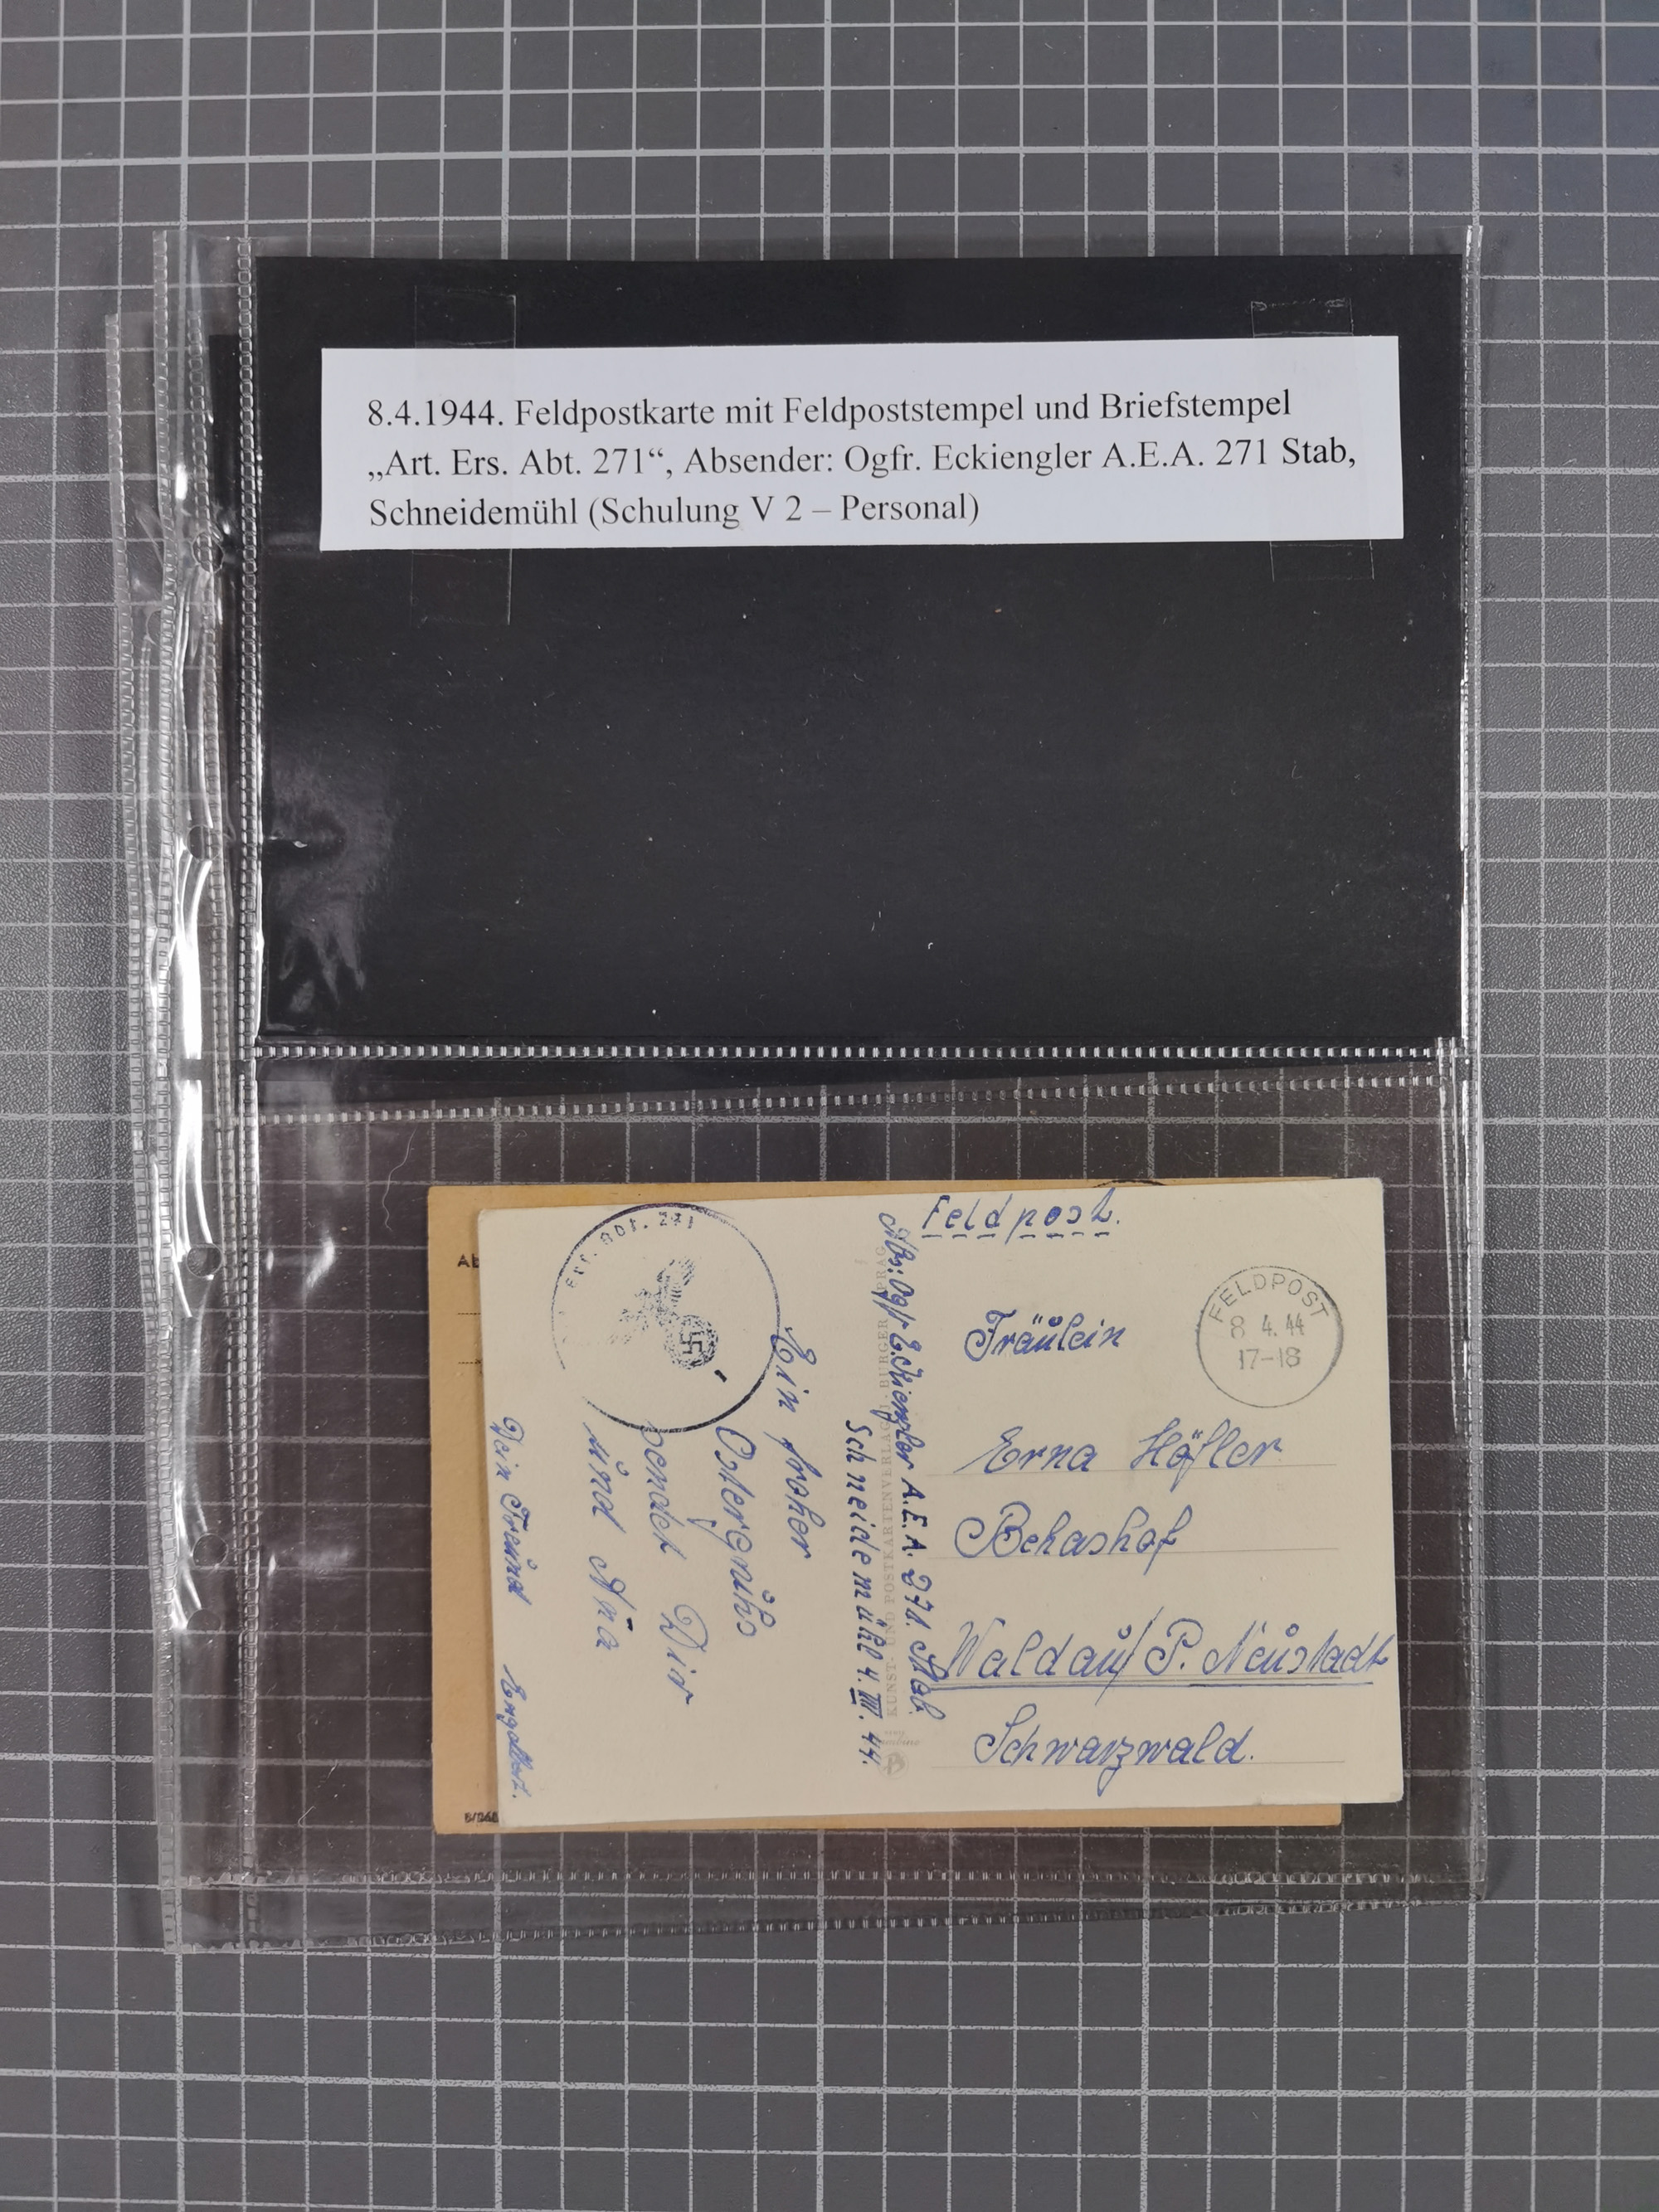 8.4.1944. Feldpostkarte mit Feldpoststempel und Briefstempel
„Art. Ers. Abt. 271“, Absender: Ogfr. Eckiengler A.E.A. 271 Stab,
Schneidemühl (Schulung V 2 – Personal)
Feldpost.
FELDPOST
8 4.44
17-18
Fräulein
Erna Höfler
Behashof
Waldau/P. Neustadt
Schwarzwald.
Abs: Ogfr E. Kiengler A.E.A. 271. Stab.
Schneidemühl 4. III. 44.
KUNST- UND POSTKARTENVERLAG BURGER PRAG
Ers. Abt. 271
Ein froher
Ostergruß
sendet Dir
und
Dein Freund Engelbert.
Ab